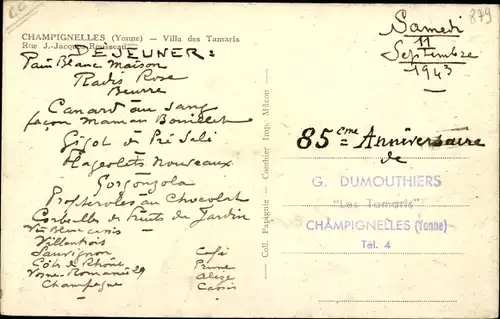 CHAMPIGNELLES (Yonne) — Villa des Tamaris
Rue J.-Jacques Rousseau
DEJEUNER:
Pain Blanc Maison
Radis Rose
Beurre
Canard au sang
façon Maman Bouillet
Gigot de Pré Salé
Flageolets Nouveaux
Gorgonzola
Profiteroles au Chocolat
Corbeilles de Fruits du Jardin
Vin Blanc cassis
Sauvignon
Côte de Rhône
Vosne-Romanée 29
Champagne
Café
Prune
Cassis
Coll. Papignie - Combier Imp. Mâcon
879
Samedi
11
Septembre
1943
85ème Anniversaire
de
G. DUMOUTHIERS
"Les Tamaris"
CHAMPIGNELLES (Yonne)
Tél. 4